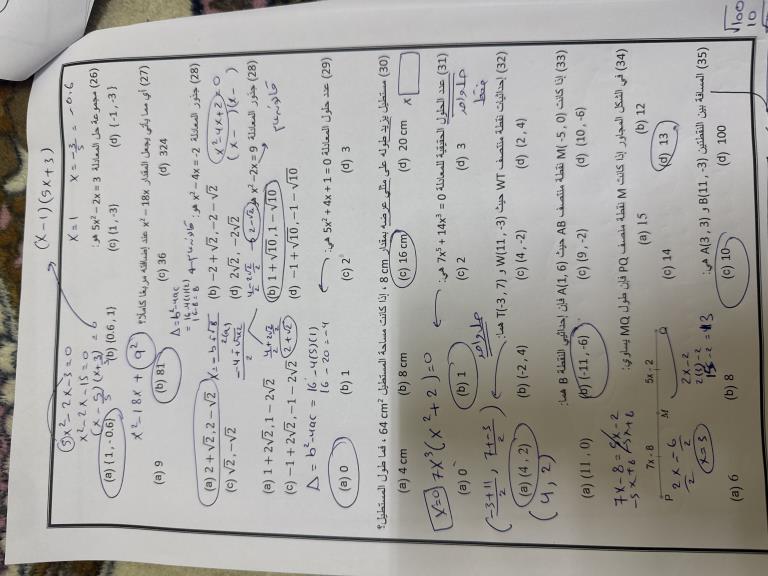 (x-1)(5x+3)
x=1 x = -3/5 = -0.6
(26) مجموعة حل المعادلة 5x² – 2x = 3 هي:
5x² - 2x - 3 = 0
x² - 2x - 15 = 0
(x - 5)(x+3) = 0
(a) {1 , -0.6} (b) {0.6 , 1} (c) {1, -3} (d) {-1, -3}
(27) أي مما يأتي يجعل المقدار x² – 18x عند إضافته مربعا كاملا؟
x² - 18x + 9²
(a) 9 (b) 81 (c) 36 (d) 324
(28) جذور المعادلة x² – 4x = -2 هي:
x² - 4x + 2 = 0
(x - )(x - )
Δ = b² - 4ac
= 16 - 4(1)(2)
16 - 8 = 8
(a) 2 + √2, 2 – √2 (b) –2 + √2, –2 – √2
(c) √2, –√2 (d) 2√2, –2√2
(28) جذور المعادلة x² – 2x = 9 هي:
(a) 1 + 2√2, 1 – 2√2 (b) 1 + √10, 1 – √10
(c) –1 + 2√2, –1 – 2√2 (d) –1 + √10, –1 – √10
(29) عدد حلول المعادلة 5x² + 4x + 1 = 0 هي:
Δ = b² - 4ac = 16 - 4(5)(1)
16 - 20 = -4
(a) 0 (b) 1 (c) 2 (d) 3
(30) مستطيل يزيد طوله على مثلي عرضه بمقدار 8 cm ، إذا كانت مساحة المستطيل 64 cm² ، فما طول المستطيل؟
(a) 4 cm (b) 8 cm (c) 16 cm (d) 20 cm
x
(31) عدد الحلول الحقيقية للمعادلة 7x⁵ + 14x³ = 0 هي:
x=0 7x³(x² + 2) = 0
(a) 0 (b) 1 (c) 2 (d) 3
(32) إحداثيات نقطة منتصف WT حيث W(11, -3) و T(-3, 7) هما:
(-3+11/2 , 7+-3/2)
(a) (4 , 2) (b) (-2, 4) (c) (4, -2) (d) (2, 4)
(4, 2)
(33) إذا كانت M(-5, 0) نقطة منتصف AB حيث A(1, 6) فإن إحداثيي النقطة B هما:
(a) (11 , 0) (b) (-11, -6) (c) (9, -2) (d) (10, -6)
(34) في الشكل المجاور إذا كانت M نقطة منتصف PQ فإن طول MQ يساوي:
7x - 8 = 5x - 2
P 7x - 8 M 5x - 2 Q
2x = 6
x = 3
(a) 15 (b) 12
(c) 14 (d) 13
(35) المسافة بين النقطتين B(11, -3) و A(3, 3) هي:
(a) 6 (b) 8 (c) 10 (d) 100
√100
10